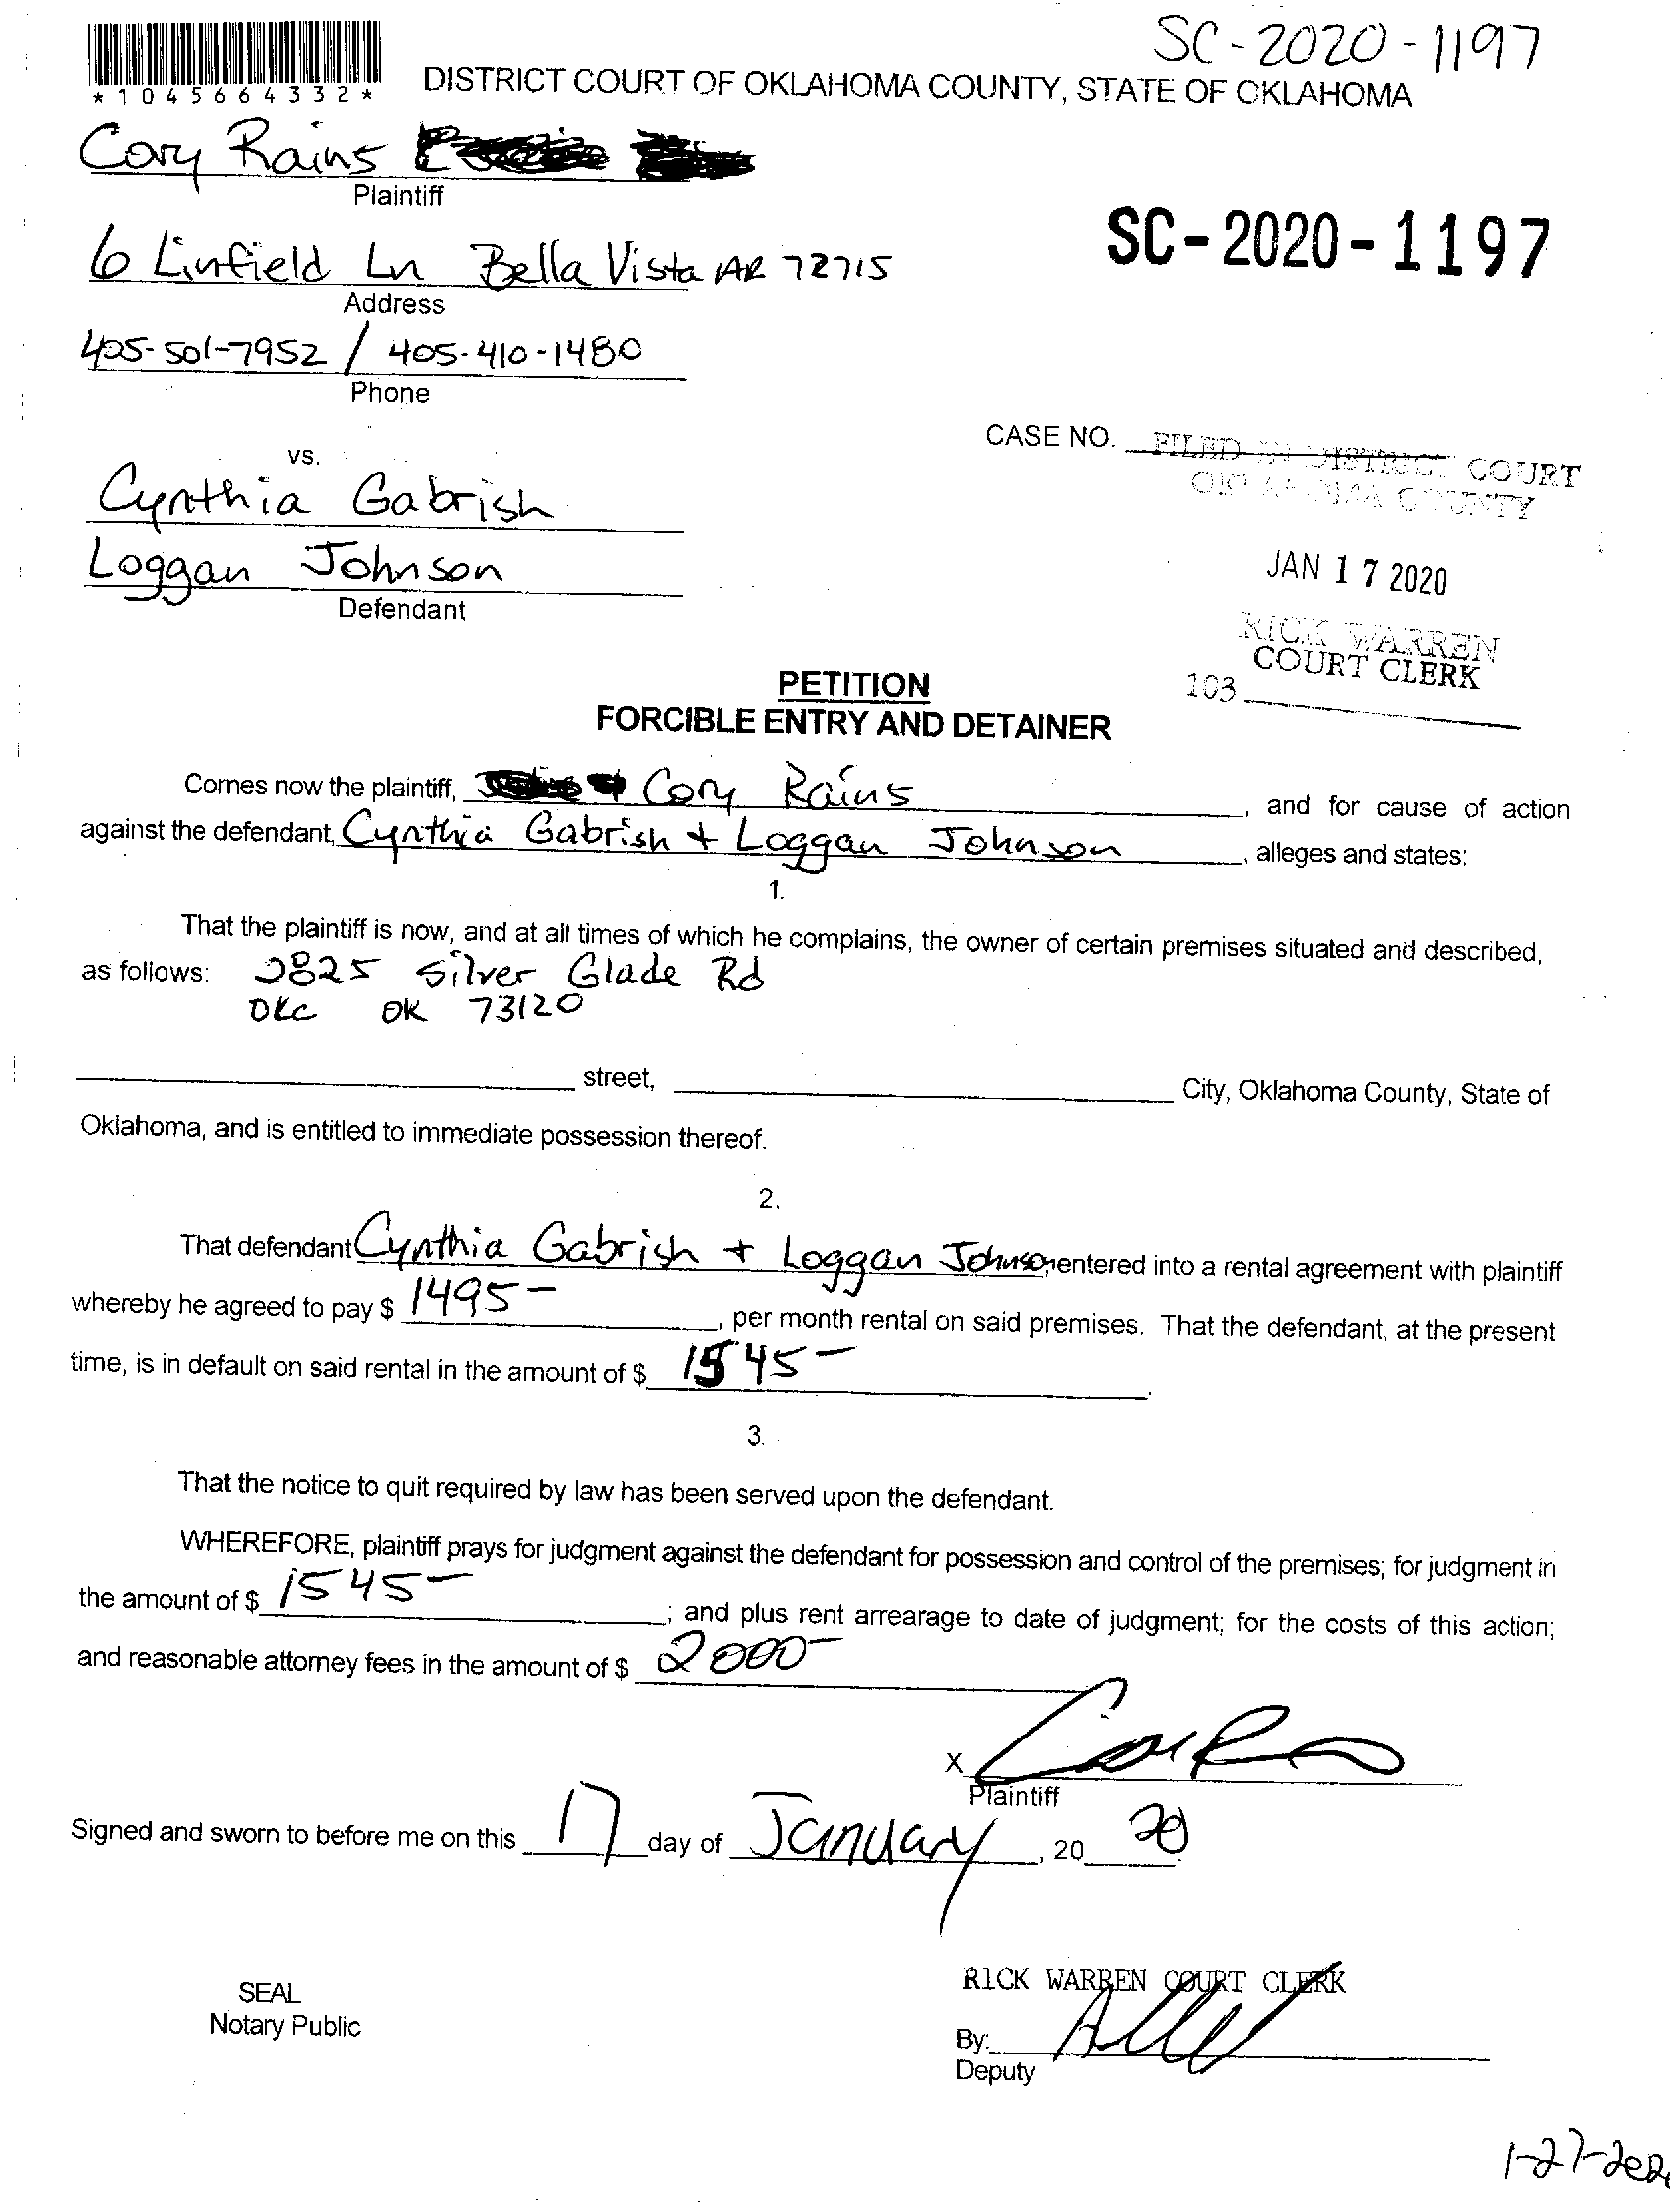 SC-2020-1197
*1045664332*
DISTRICT COURT OF OKLAHOMA COUNTY, STATE OF OKLAHOMA
Cory Rains
Plaintiff
SC-2020-1197
6 Linfield Ln Bella Vista AR 72715
Address
405-501-7952 / 405-410-1480
Phone
CASE NO.
FILED IN DISTRICT COURT
OKLAHOMA COUNTY
vs.
Cynthia Gabrish
Loggan Johnson
Defendant
JAN 17 2020
RICK WARREN
COURT CLERK
103
PETITION
FORCIBLE ENTRY AND DETAINER
Comes now the plaintiff, Cory Rains, and for cause of action
against the defendant, Cynthia Gabrish + Loggan Johnson, alleges and states:
1.
That the plaintiff is now, and at all times of which he complains, the owner of certain premises situated and described,
as follows: 2825 Silver Glade Rd
OKC OK 73120
street, City, Oklahoma County, State of
Oklahoma, and is entitled to immediate possession thereof.
2.
That defendant Cynthia Gabrish + Loggan Johnson entered into a rental agreement with plaintiff
whereby he agreed to pay $ 1495-, per month rental on said premises. That the defendant, at the present
time, is in default on said rental in the amount of $ 1545-.
3.
That the notice to quit required by law has been served upon the defendant.
WHEREFORE, plaintiff prays for judgment against the defendant for possession and control of the premises; for judgment in
the amount of $ 1545-; and plus rent arrearage to date of judgment; for the costs of this action;
and reasonable attorney fees in the amount of $ 2000-
X
Plaintiff
Signed and sworn to before me on this 17 day of January, 20 20
SEAL
Notary Public
RICK WARREN COURT CLERK
By:
Deputy